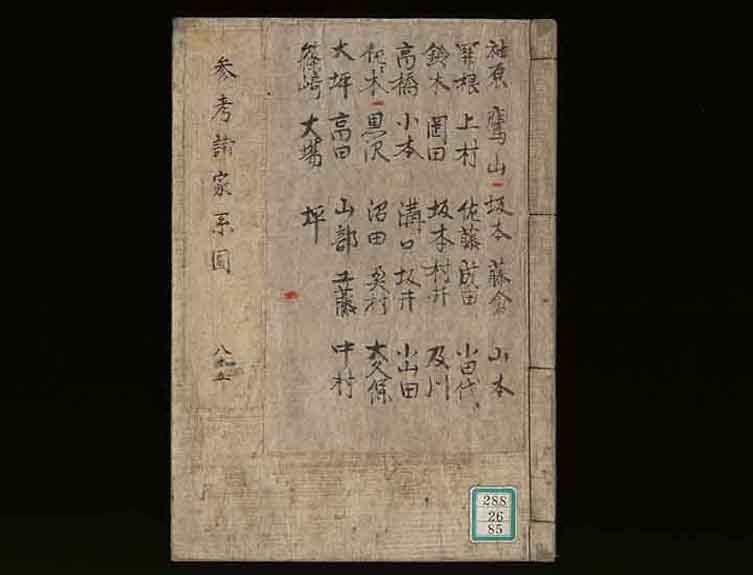 参考諸家系図
八十五
袖原 鷹山 坂本 藤倉 山本
関根 上村 佐藤 成田 小田代
鈴木 岡田 坂本 村井 及川
高橋 小本 溝口 坂井 小山田
木 黒沢 沼田 奥村 大久保
大坪 高田 山部 工藤 中村
篠崎 大場 坪
288
26
85